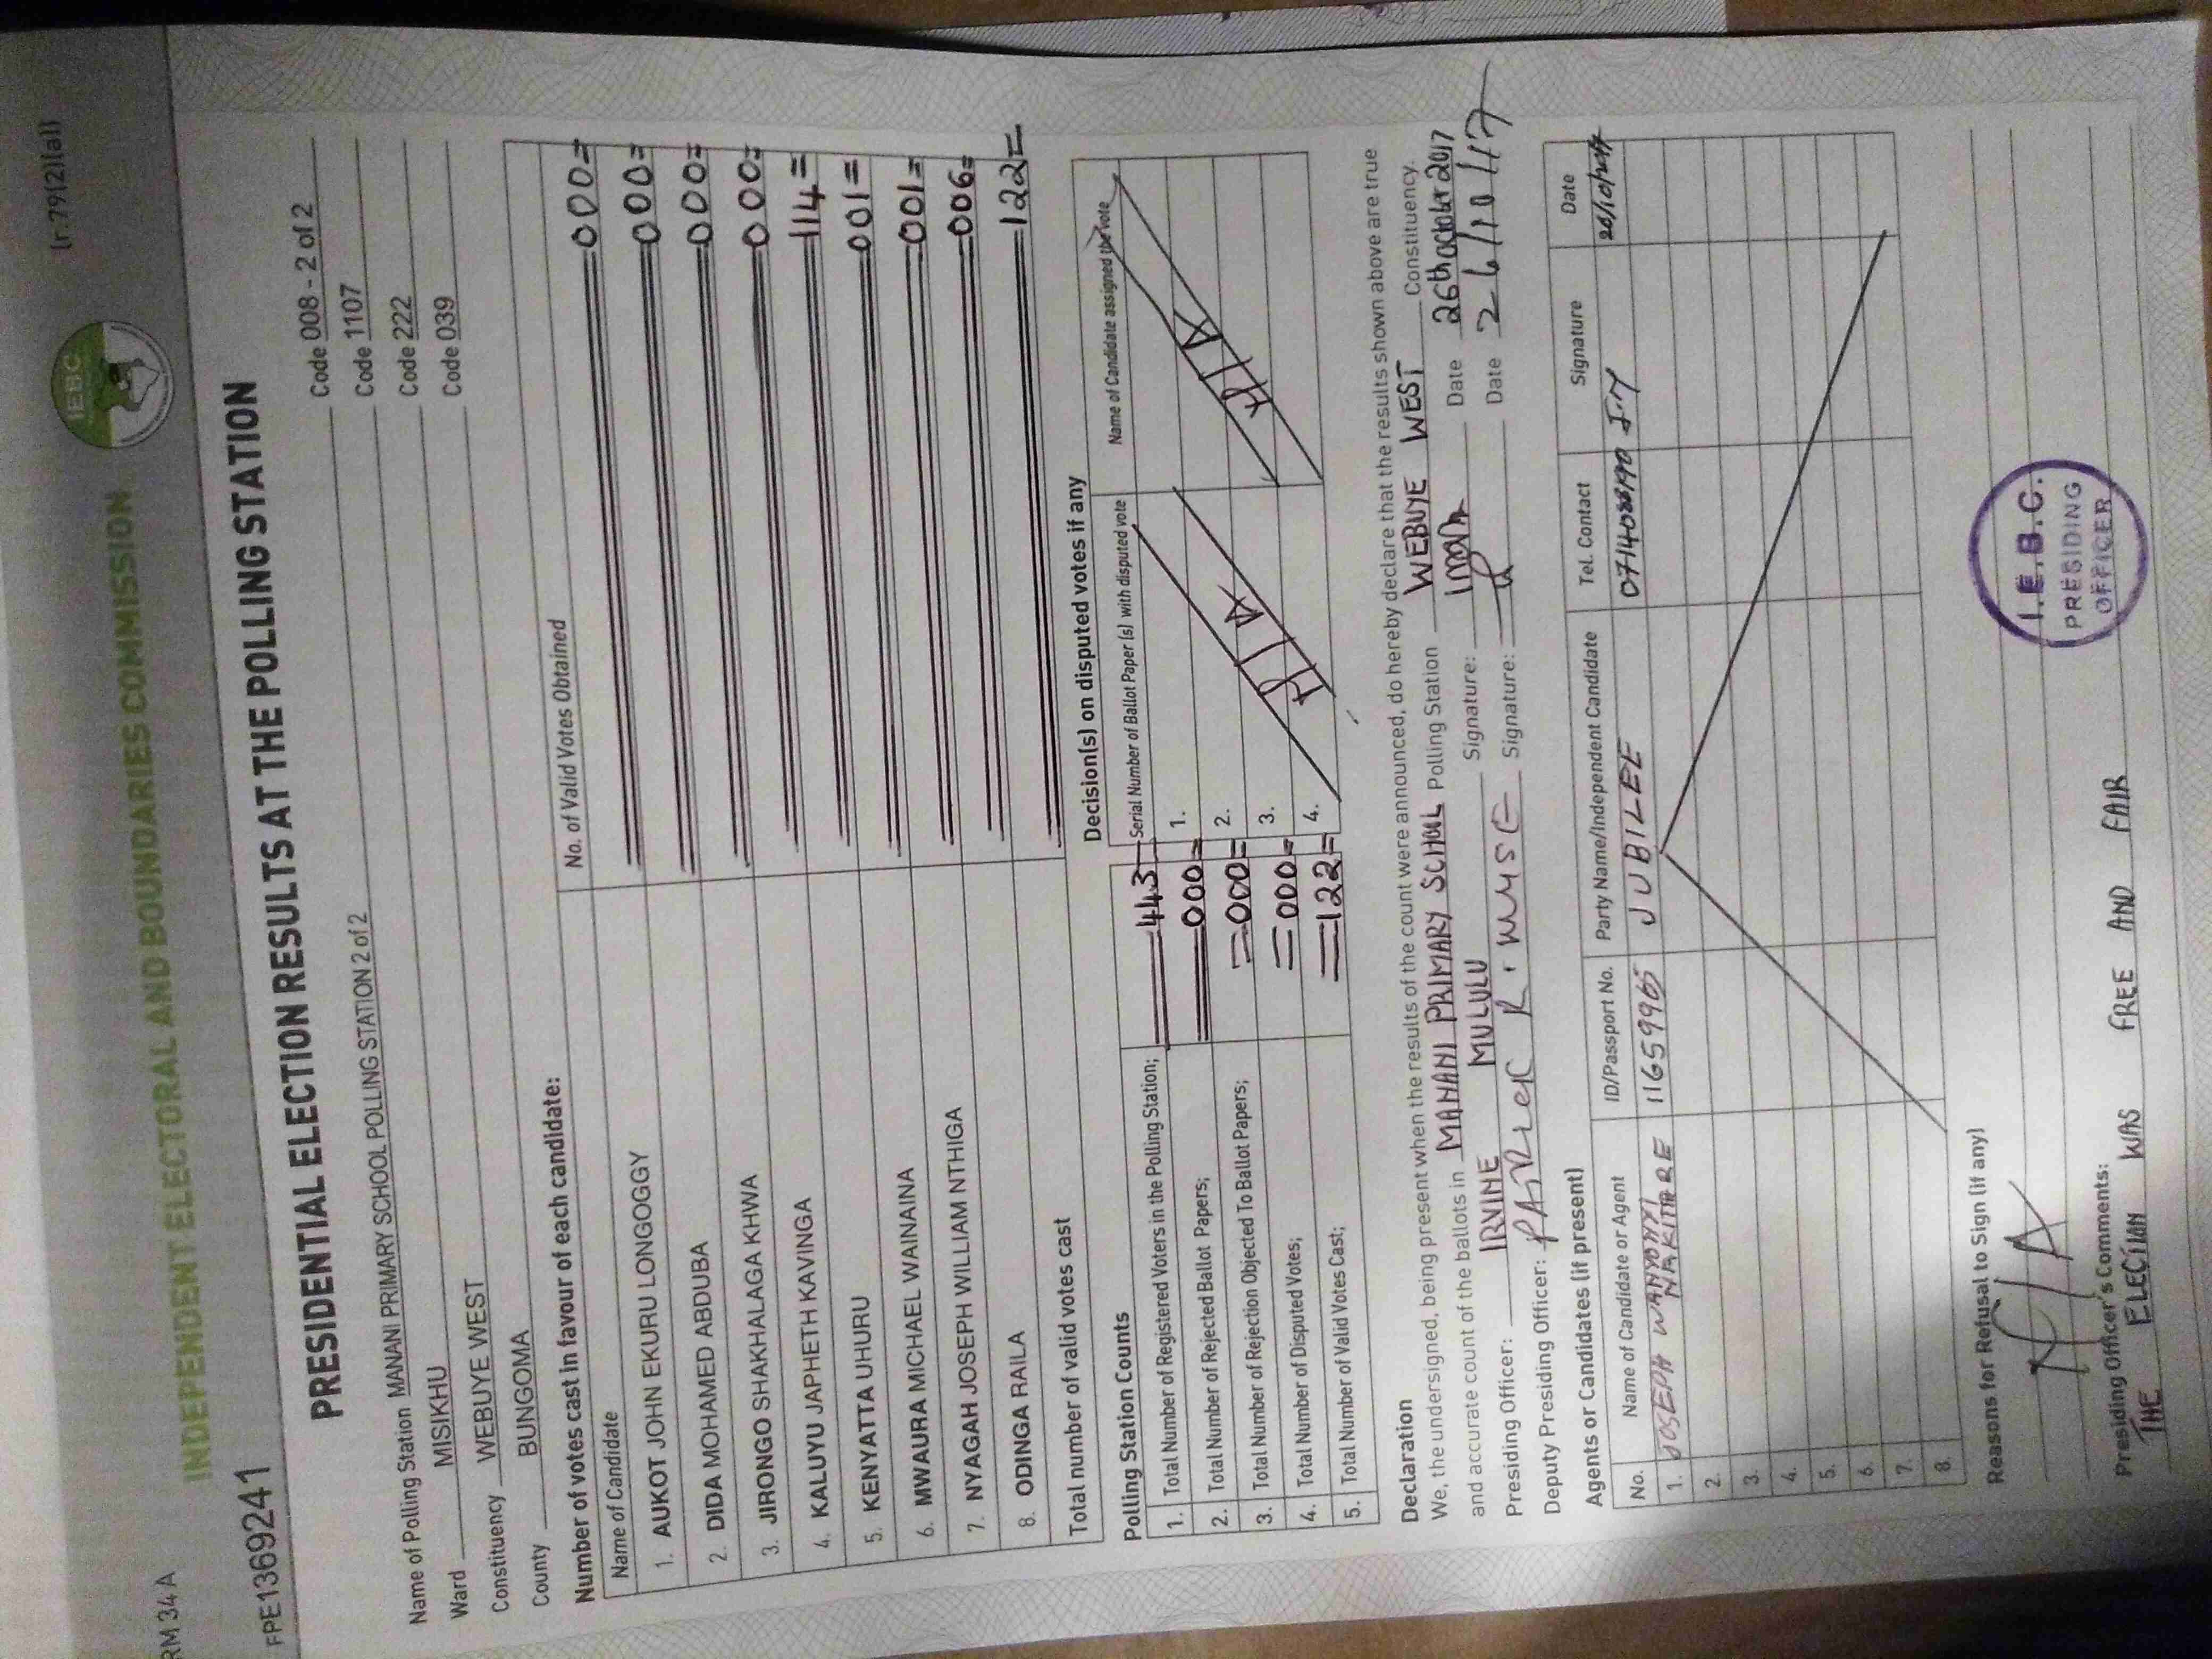 RM 34 A
(r.79(2)(a))
INDEPENDENT ELECTORAL AND BOUNDARIES COMMISSION
IEBC
FPE1369241
PRESIDENTIAL ELECTION RESULTS AT THE POLLING STATION
Name of Polling Station MANANI PRIMARY SCHOOL POLLING STATION 2 of 2 Code 008 - 2 of 2
Ward MISIKHU Code 1107
Constituency WEBUYE WEST Code 222
County BUNGOMA Code 039
Number of votes cast in favour of each candidate:
Name of Candidate No. of Valid Votes Obtained
1. AUKOT JOHN EKURU LONGOGGY 000=
2. DIDA MOHAMED ABDUBA 000=
3. JIRONGO SHAKHALAGA KHWA 000=
4. KALUYU JAPHETH KAVINGA 000=
5. KENYATTA UHURU 114=
6. MWAURA MICHAEL WAINAINA 001=
7. NYAGAH JOSEPH WILLIAM NTHIGA 001=
8. ODINGA RAILA 006=
Total number of valid votes cast 122=
Polling Station Counts
1. Total Number of Registered Voters in the Polling Station; 443
2. Total Number of Rejected Ballot Papers; 000=
3. Total Number of Rejection Objected To Ballot Papers; =000=
4. Total Number of Disputed Votes; =000=
5. Total Number of Valid Votes Cast; =122=
Decision(s) on disputed votes if any
Serial Number of Ballot Paper (s) with disputed vote Name of Candidate assigned the vote
1.
2.
3.
4.
N/A N/A
Declaration
We, the undersigned, being present when the results of the count were announced, do hereby declare that the results shown above are true
and accurate count of the ballots in MANANI PRIMARY SCHOOL Polling Station WEBUYE WEST Constituency.
Presiding Officer: IRVINE MULULU Signature: Date 26th october 2017
Deputy Presiding Officer: PATRICK Signature: Date 26/10/17
Agents or Candidates (if present)
No. Name of Candidate or Agent ID/Passport No. Party Name/Independent Candidate Tel. Contact Signature Date
1. JOSEPH WANYONYI 11659965 JUBILEE
2.
3.
4.
5.
6.
7.
8.
Reasons for Refusal to Sign (if any)
N/A
Presiding Officer's Comments:
THE ELECTION WAS FREE AND FAIR
I.E.B.C.
PRESIDING
OFFICER